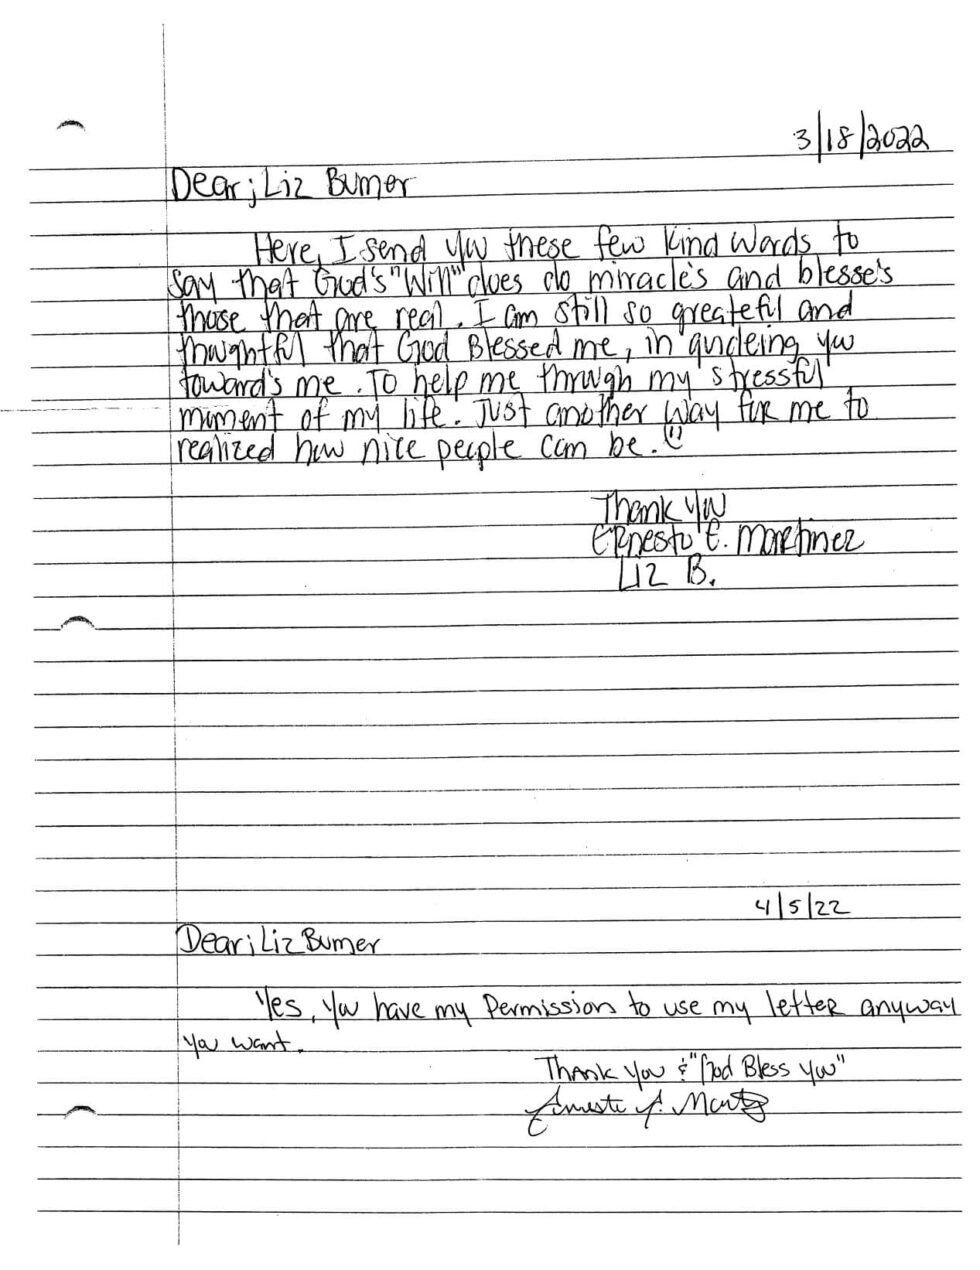 3/18/2022
Dear; Liz Bumer
Here, I send you these few kind words to
say that God's "Will" does do miracle's and blesse's
those that are real. I am still so greateful and
thoughtful that God Blessed me, in guideing you
toward's me. To help me through my stressful
moment of my life. Just another way for me to
realized how nice people can be.
Thank you
Ernesto E. Martinez
Liz B.
4/5/22
Dear; Liz Bumer
Yes, you have my Permission to use my letter anyway
you want.
Thank you & "God Bless you"